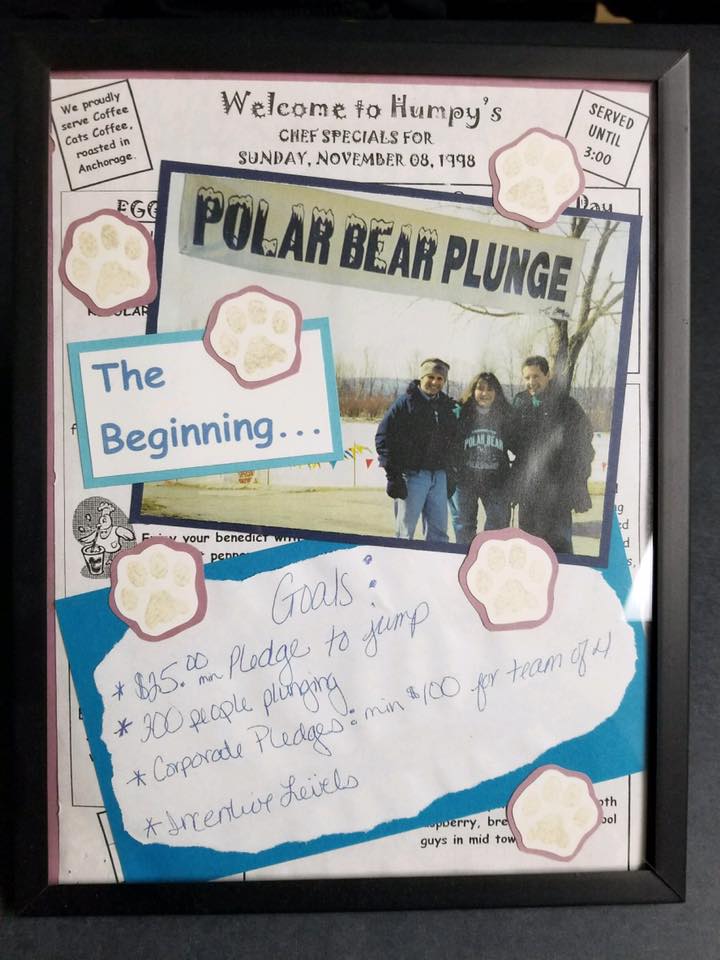 We proudly
serve Coffee
Cats Coffee,
roasted in
Anchorage.
Welcome to Humpy's
CHEF SPECIALS FOR
SUNDAY, NOVEMBER 08, 1998
SERVED
UNTIL
3:00
POLAR BEAR PLUNGE
POLAR BEAR
The
Beginning...
Enjoy your benedict
Goals:
* $25.00 min Pledge to jump
* 300 people plunging
* Corporate Pledges: min $100 for team of 4
* Incentive Levels
guys in mid